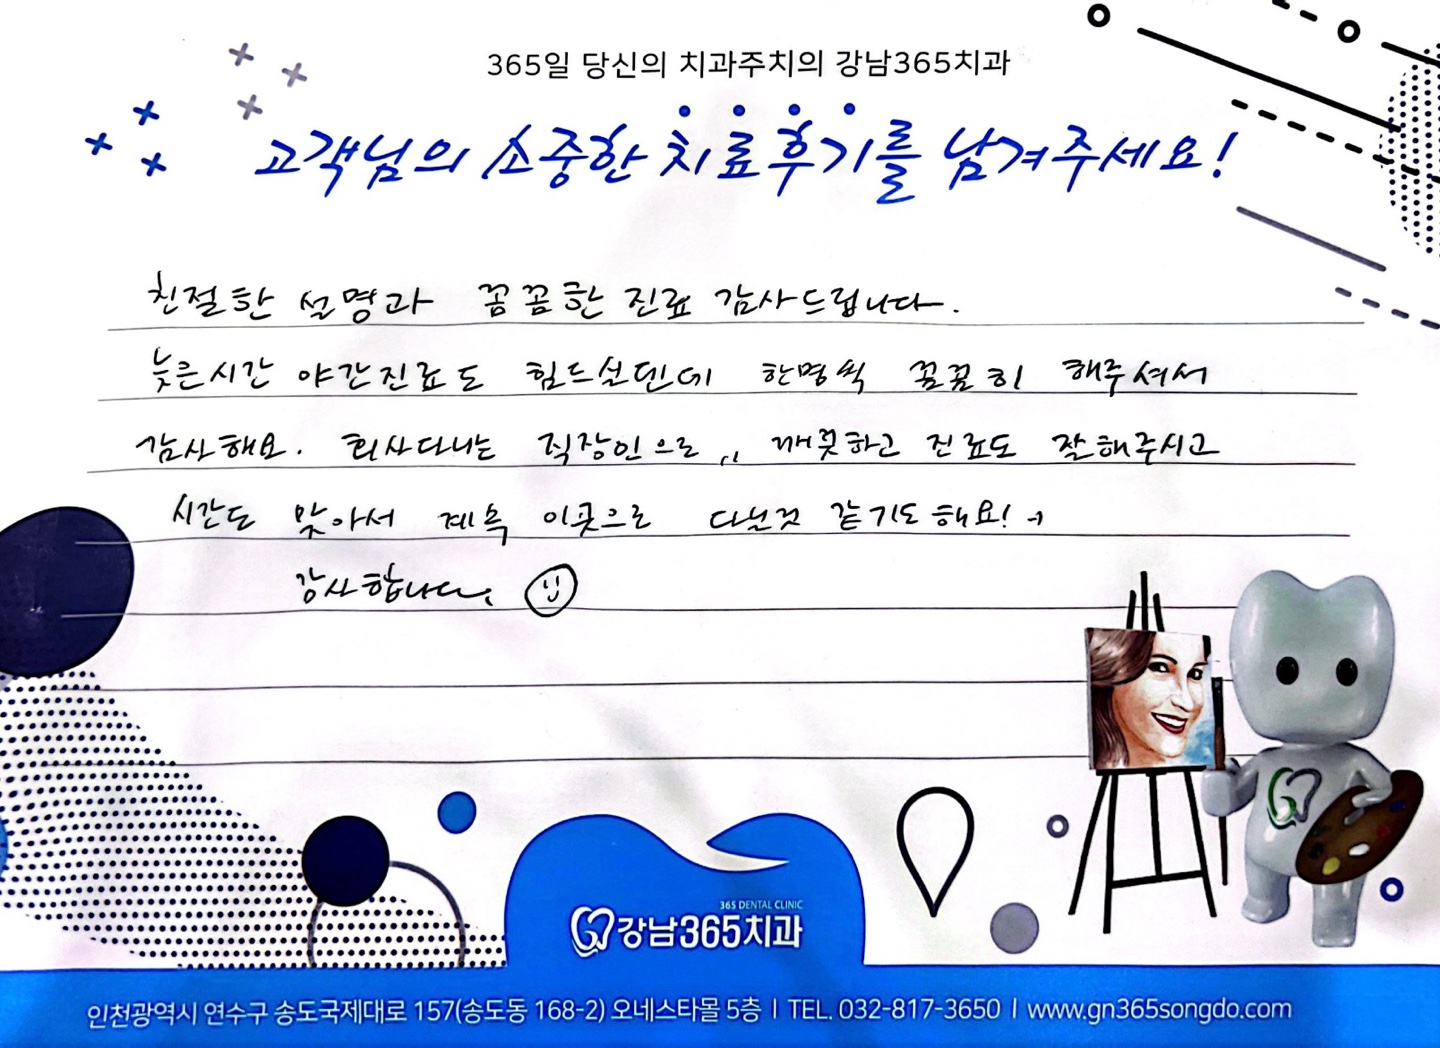 365일 당신의 치과주치의 강남365치과
고객님의 소중한 치료후기를 남겨주세요!
친절한 설명과 꼼꼼한 진료 감사드립니다.
늦은시간 야간진료도 힘드실텐데 한명씩 꼼꼼히 해주셔서
감사해요. 회사다니는 직장인으로,, 깨끗하고 진료도 잘해주시고
시간도 맞아서 계속 이곳으로 다닐것 같기도해요! →
감사합니다.
365 DENTAL CLINIC
강남365치과
인천광역시 연수구 송도국제대로 157(송도동 168-2) 오네스타몰 5층 | TEL. 032-817-3650 | www.gn365songdo.com